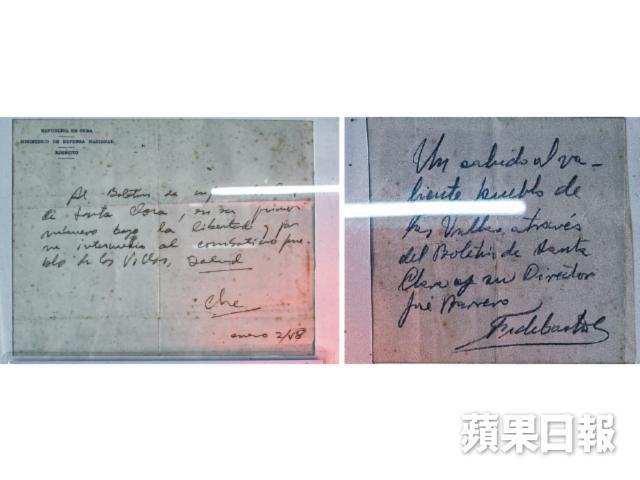 REPUBLICA DE CUBA
MINISTERIO DE DEFENSA NACIONAL
EJERCITO
Al Boletin de
de Santa Clara, en su primer
número bajo la libertad y por
su intermedio al combativo pue-
blo de las Villas, Salud
Che
enero 2/
Un saludo al va-
liente pueblo de
Las Villas, a través
del Boletin de Santa
Clara y su Director
José
Fidel Castro
蘋果日報